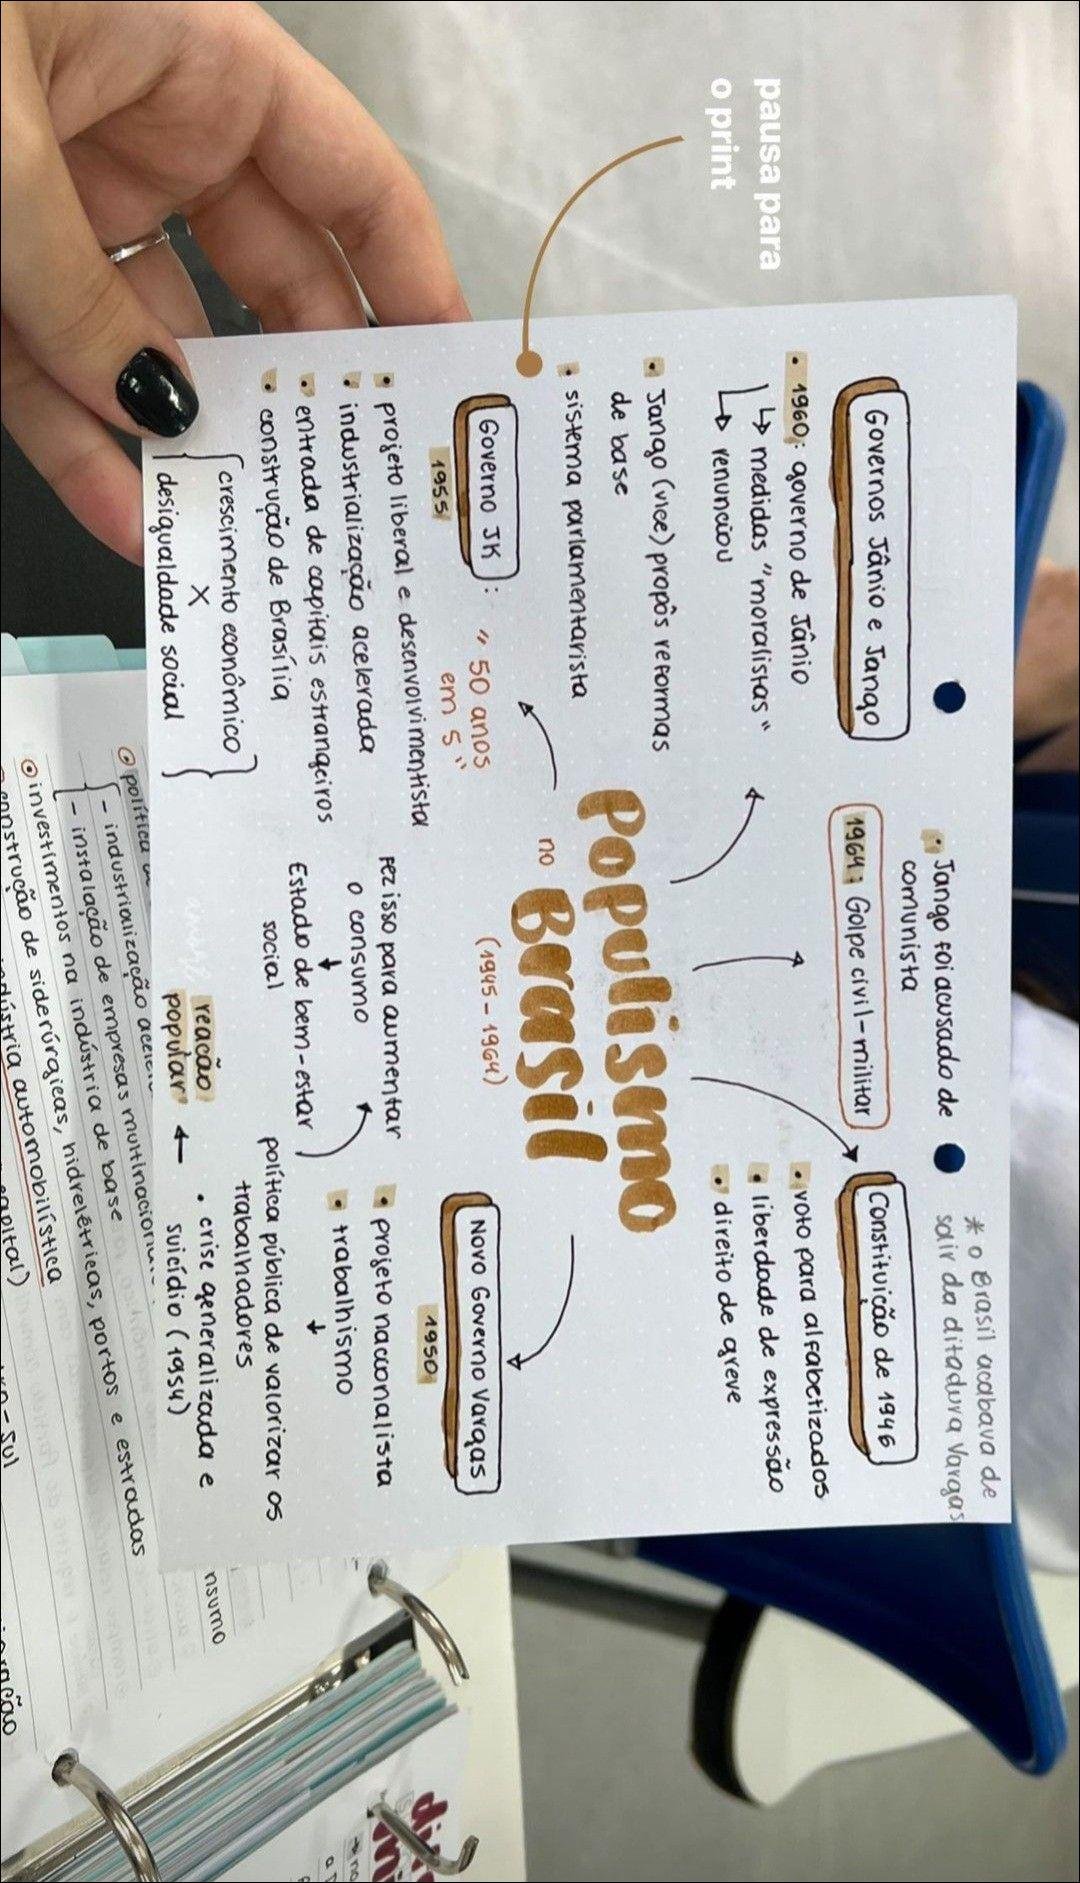 pausa para
o print
Governos Jânio e Jango
• 1960: governo de Jânio
↳ medidas "moralistas"
↳ renunciou
• Jango (vice) propôs reformas
de base
• sistema parlamentarista
• Jango foi acusado de
comunista
1964: Golpe civil-militar
* o Brasil acabava de
sair da ditadura Vargas
Constituição de 1946
• voto para alfabetizados
• liberdade de expressão
• direito de greve
Populismo
no Brasil
(1945 - 1964)
Governo JK : "50 anos
em 5"
1955
• projeto liberal e desenvolvimentista
• industrialização acelerada
• entrada de capitais estrangeiros
• construção de Brasília
crescimento econômico
X
desigualdade social
Novo Governo Vargas
1950
• projeto nacionalista
• trabalhismo
↓
política pública de valorizar os
trabalhadores
fez isso para aumentar
o consumo
↓
Estado de bem-estar
social
• crise generalizada e
suicídio (1954)
←
reação
popular
nsumo
política
- industrialização
- instalação de empresas multinacion
investimentos na indústria de base
construção de siderúrgicas, hidrelétricas, portos e estradas
indústria automobilística
capital)